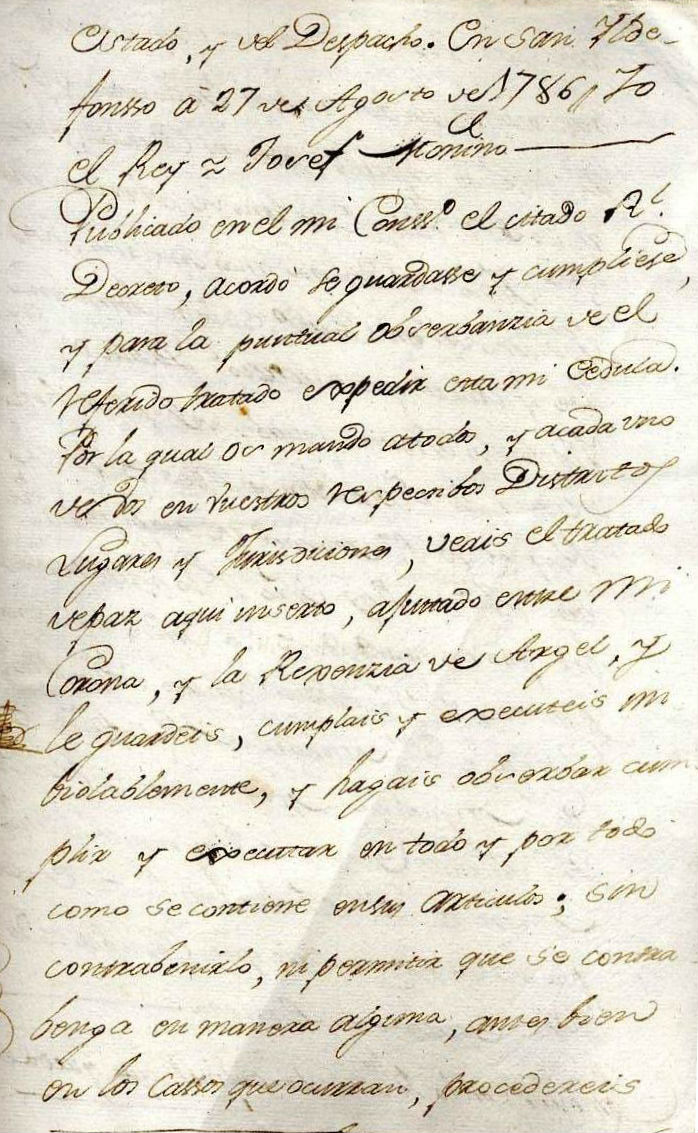 Estado, y del Despacho. En San Ylde-
fonsso à 27 de Agosto de 1786 Yo
el Rey ~ Josef Moñino
Publicado en el mi Conss.º el citado R.l
Decreto, acordó se guardasse y cumpliese,
y para la puntual observanzia de el
referido tratado expedir esta mi Cedula.
Por la qual os mando atodos, y acada uno
de Vos en vuestros respectibos Distritos
Lugares y Jurisdiciones, veais el tratado
de paz aqui inserto, ajustado entre mi
Corona, y la Rexenzia de Argel, y
le guardeis, cumplais y executeis in
biolablemente, y hagais observar cum
plir y executar en todo y por todo
como se contiene en sus Articulos; sin
contrabenirlo, ni permitir que se contra
benga en manera alguna, antes bien
en los Cassos que ocurran, procedereis